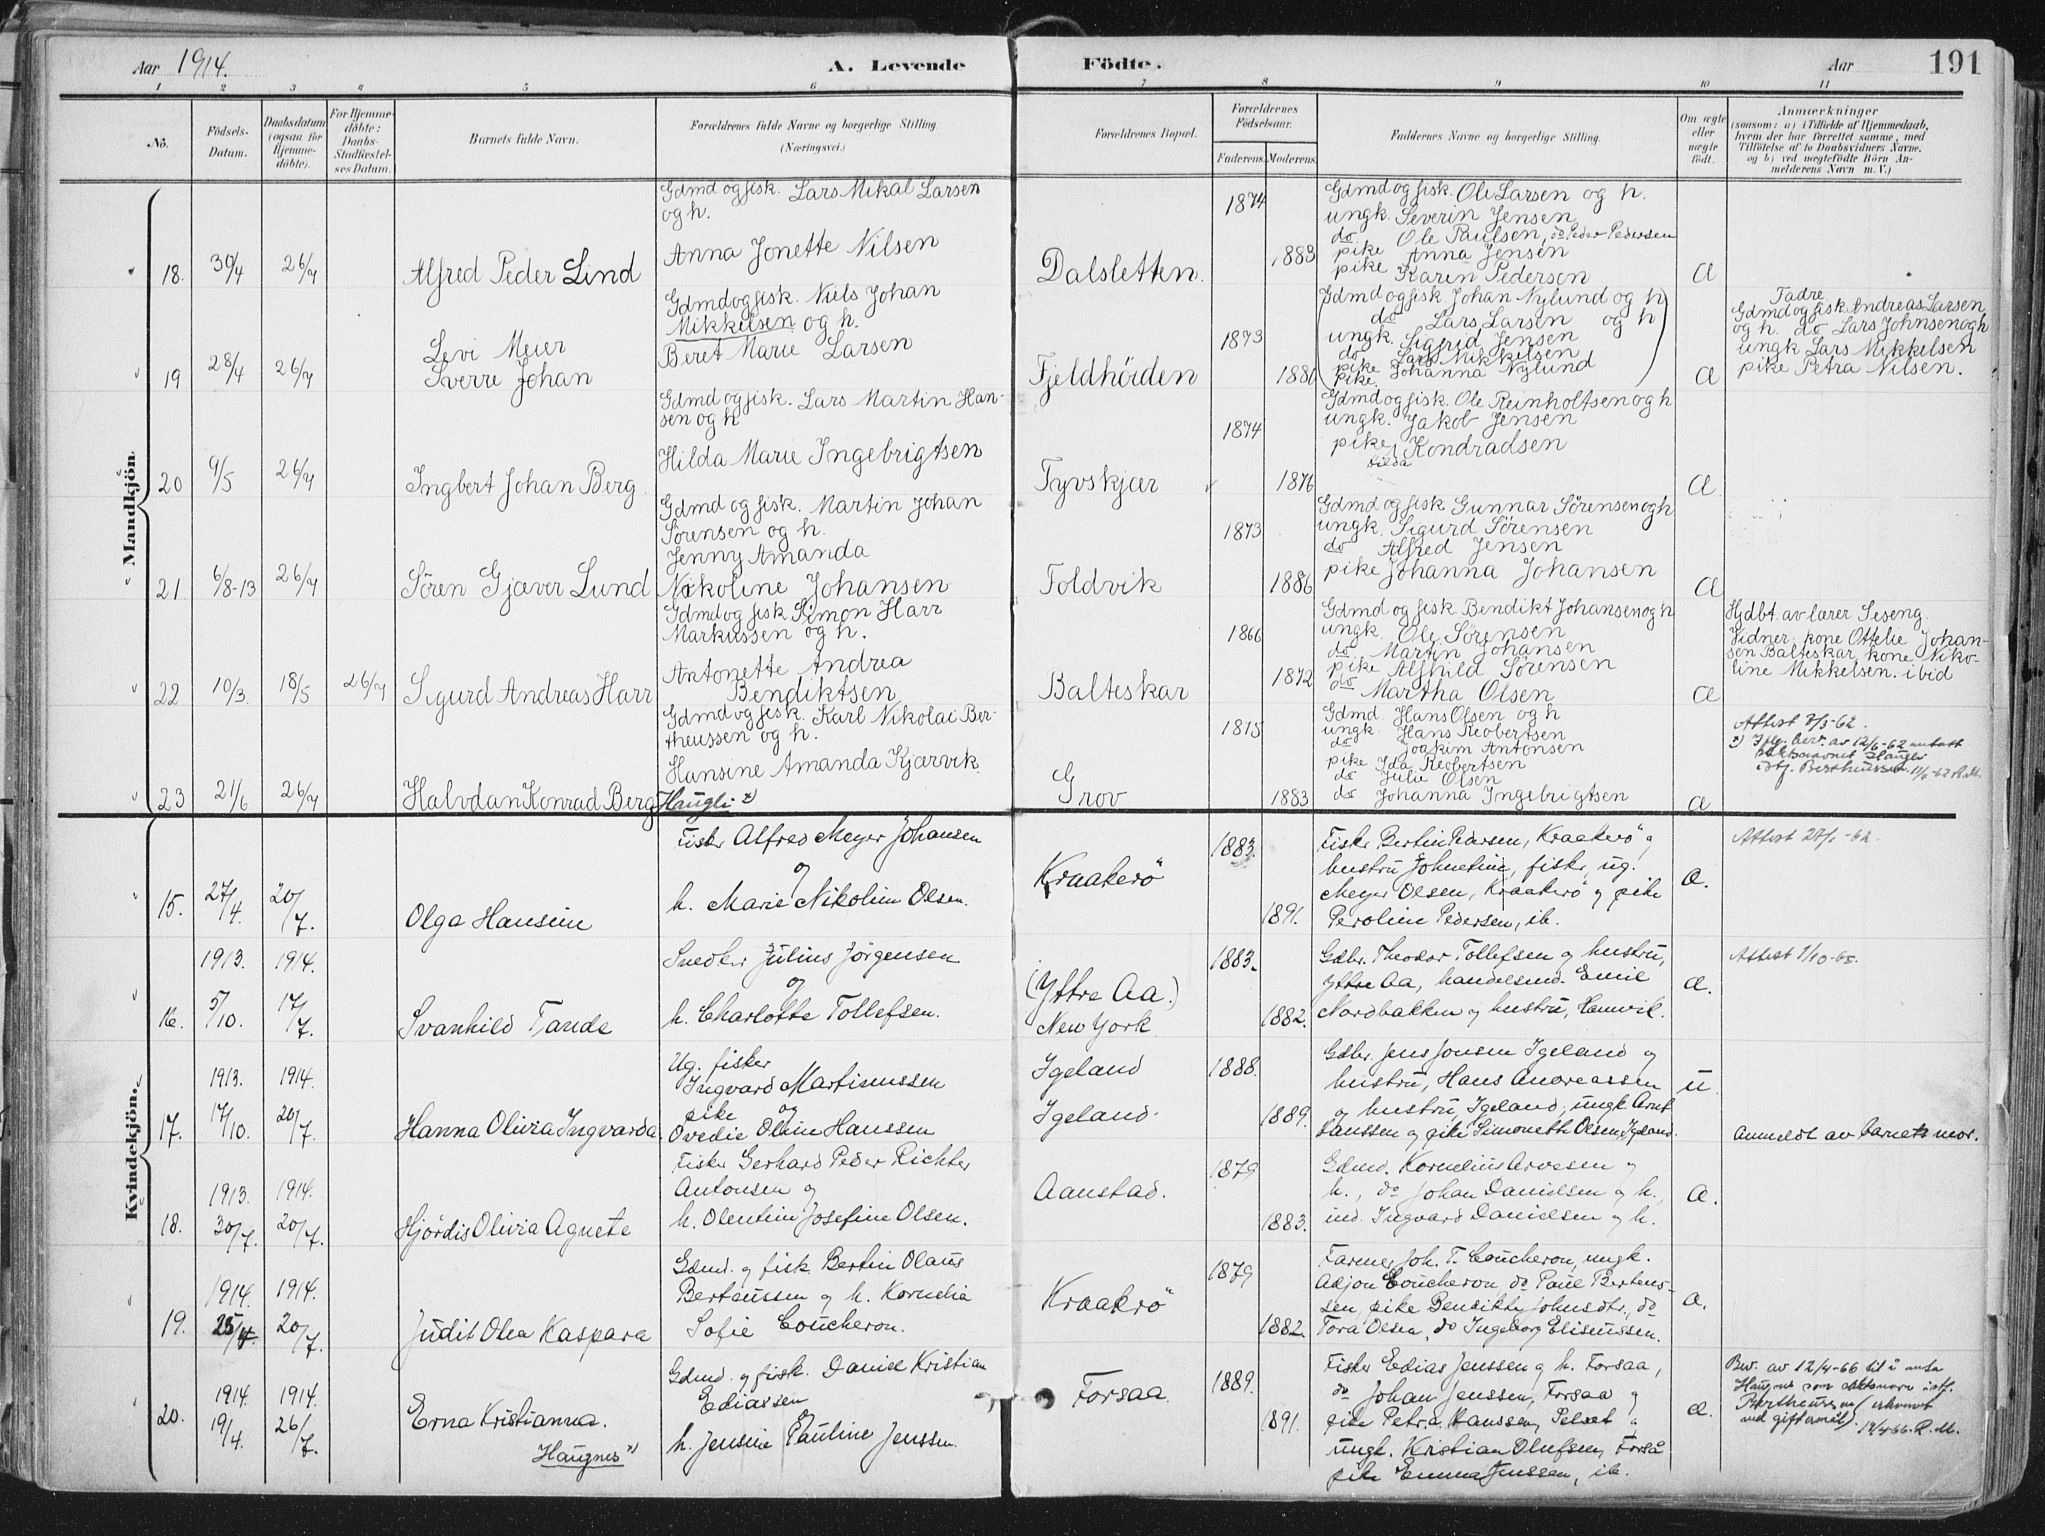 Aar 1914. A. Levende Födte. Aar 191
1 2 3 4 5 6 7 8 9 10 11
No.
Födsels-Datum.
Daabsdatum (ogsaa for Hjemme-döbte).
For Hjemme-döbte: Daabs-Stadfæstel-ses Datum.
Barnets fulde Navn.
Forældrenes fulde Navne og borgerlige Stilling.
(Næringsvei.)
Forældrenes Bopæl.
Forældrenes Födselsaar.
Faderens. Moderens.
Faddernes Navne og borgerlige Stilling.
Om ægte eller uægte födt.
Anmærkninger
(saasom: a) i Tilfælde af Hjemmedaab,
hvem der har forrettet samme, med
Tilföielse af to Daabsvidners Navne,
og b) ved uægtefödte Börn An-
melderens Navn m. V.)
Mandkjön.
18. 30/4 26/7 Alfred Peder Lind
Gdmd og fisk. Lars Mikal Larsen
og h.
Anna Jonette Nilsen
Dalsletten. 1874 1883
Gdmd og fisk. Ole Larsen og h.
ungk. Severin Jensen
do Ole Paulsen, do Peder Pedersen
pike Anna Jensen
pike Karen Pedersen
a
19 28/4 26/7 Levi Meier
Sverre Johan
Gdmd og fisk. Niels Johan
Mikkelsen og h.
Beret Marie Larsen
Fjeldhöiden 1873 1880
Gdmd og fisk. Johan Nylund og h
do Lars Larsen og h
ungk. Sigfrid Jensen
do Lars Mikkelsen
pike Johanna Nylund
pike
a
Fadre
Gdmd og fisk. Andreas Larsen
og h. do Lars Johnsen og h
ungk Lars Mikkelsen
pike Petra Nilsen.
20 9/5 26/7 Ingbert Johan Berg
Gdmd og fisk. Lars Martin Han-
sen og h
Hilda Marie Ingebrigtsen
Tyvskjær 1874 1876
Gdmd og fisk. Ole Reinholtsen og h
ungk. Jakob Jensen
pike Kondradsen
Hilda
a
21 6/8-13 26/7 Sören Gjæver Lund
Gdmd og fisk. Martin Johan
Sörensen og h.
Jenny Amanda
Nikoline Johansen
Foldvik 1873 1886
Gdmd og fisk Gunnar Sörensen og h
ungk. Sigurd Sörensen
do Alfred Jensen
pike Johanna Johansen
a
22 10/3 18/5 26/7 Sigurd Andreas Harr
Gdmd og fisk Simon Harr
Markussen og h.
Antonette Andrea
Bendiktsen
Balteskar 1866 1872
Gdmd og fisk Bendikt Johansen og h
ungk. Ole Sörensen
do Martin Johansen
pike Alfhild Sörensen
do Martha Olsen
a
Hjdbt. av lærer Seseng.
Vidner: kone Ottelie Johan-
sen Balteskar, kone Niko-
line Mikkelsen. ibid
23 21/6 26/7 Halvdan Konrad Berg Haugli x)
Gdmd og fisk. Karl Nikolai Ber-
theussen og h.
Hansine Amanda Kjærvik
Grov 1875 1883
Gdmd Hans Olsen og h
ungk. Hans Reobertsen
do Joakim Antonsen
pike Ida Reobertsen
do Julie Olsen
do Johanna Ingebrigtsen
a
Attest 7/3-62.
x) Iflg. bev. av 12/6-62 antatt
slektsnavnet Haugli
istf. Berthussen.
Kvindekjön.
15. 27/4. 20/7. Olga Hansine
Fisker Alfred Meyer Johansen
og
h. Marie Nikoline Olsen.
Kraakerö 1883. 1891.
Fisker Bertin Larsen, Kraakerö og
hustru Johnetine, fisker, ug.
Meyer Olsen, Kraakerö og pike
Peroline Pedersen, ib.
a.
16. 1913. 5/10. 1914. 17/7. Svanhild Tande
Snedker Julius Jörgensen
og
h. Charlotte Tollefsen.
(Yttre Aa.)
New York 1883. 1882.
Gdbr. Theodor Tollefsen og hustru,
Yttre Aa, handelsmd. Emil
Nordbakken og hustru, Hamvik.
a.
Attest 1/10-65.
17. 1913. 17/10. 1914. 20/7. Hanna Olivia Ingvarda
Ug. fisker
Ingvard Martinussen
pike og
Ovedie Oline Hanssen
Igeland
Igeland. 1888. 1889.
Gdbr. Jens Jonsen Igeland og
hustru, Hans Andreassen
og hustru, Igeland; ungk Arnt
Hanssen og pike Simoneth Olsen, Igeland.
u.
Anmeldt av barnets mor.
18. 1913. 30/7. 1914. 20/7. Hjördis Olivia Agnete
Fisker Gerhard Peder Richter
Antonsen og
h. Olentine Josefine Olsen.
Aanstad. 1879 1883.
Gdmd. Kornelius Arvesen og
h., do Johan Danielsen og h.,
ind. Ingvard Danielsen og h.
a.
19. 1914. 25/4. 1914. 20/7. Judit Olea Kaspara
Gdmd. og fisk. Bertin Olaus
Berteussen og h. Kornelia
Sofie Coucheron.
Kraakrö 1879 1882.
Farmer Joh. T. Coucheron, ungk.
Adjon Coucheron do Paul Bertens-
sen, pike Bendikte Johnsdtr., do
Tora Olsen, do Ingeborg Eliseussen.
a.
20. 1914. 19/4. 1914. 26/7. Erna Kristianna.
Haugnes x)
Gdmd. og fisk. Daniel Kristian
Ediassen
og
h. Jensine Pauline Jenssen.
Forsaa 1889. 1891.
Fisker Edias Jenssen og h. Forsaa,
do Johan Jenssen, Forsaa og
pike Petra Hanssen, Selset og
ungk. Kristian Olufsen, Forså
pike Emma Jenssen, ib.
a.
Bev. av 12/4-66 til å anta
Haugnes som slektsnavn istf.
Bertheussen
ved giftermål. 19/4 66. R.M.